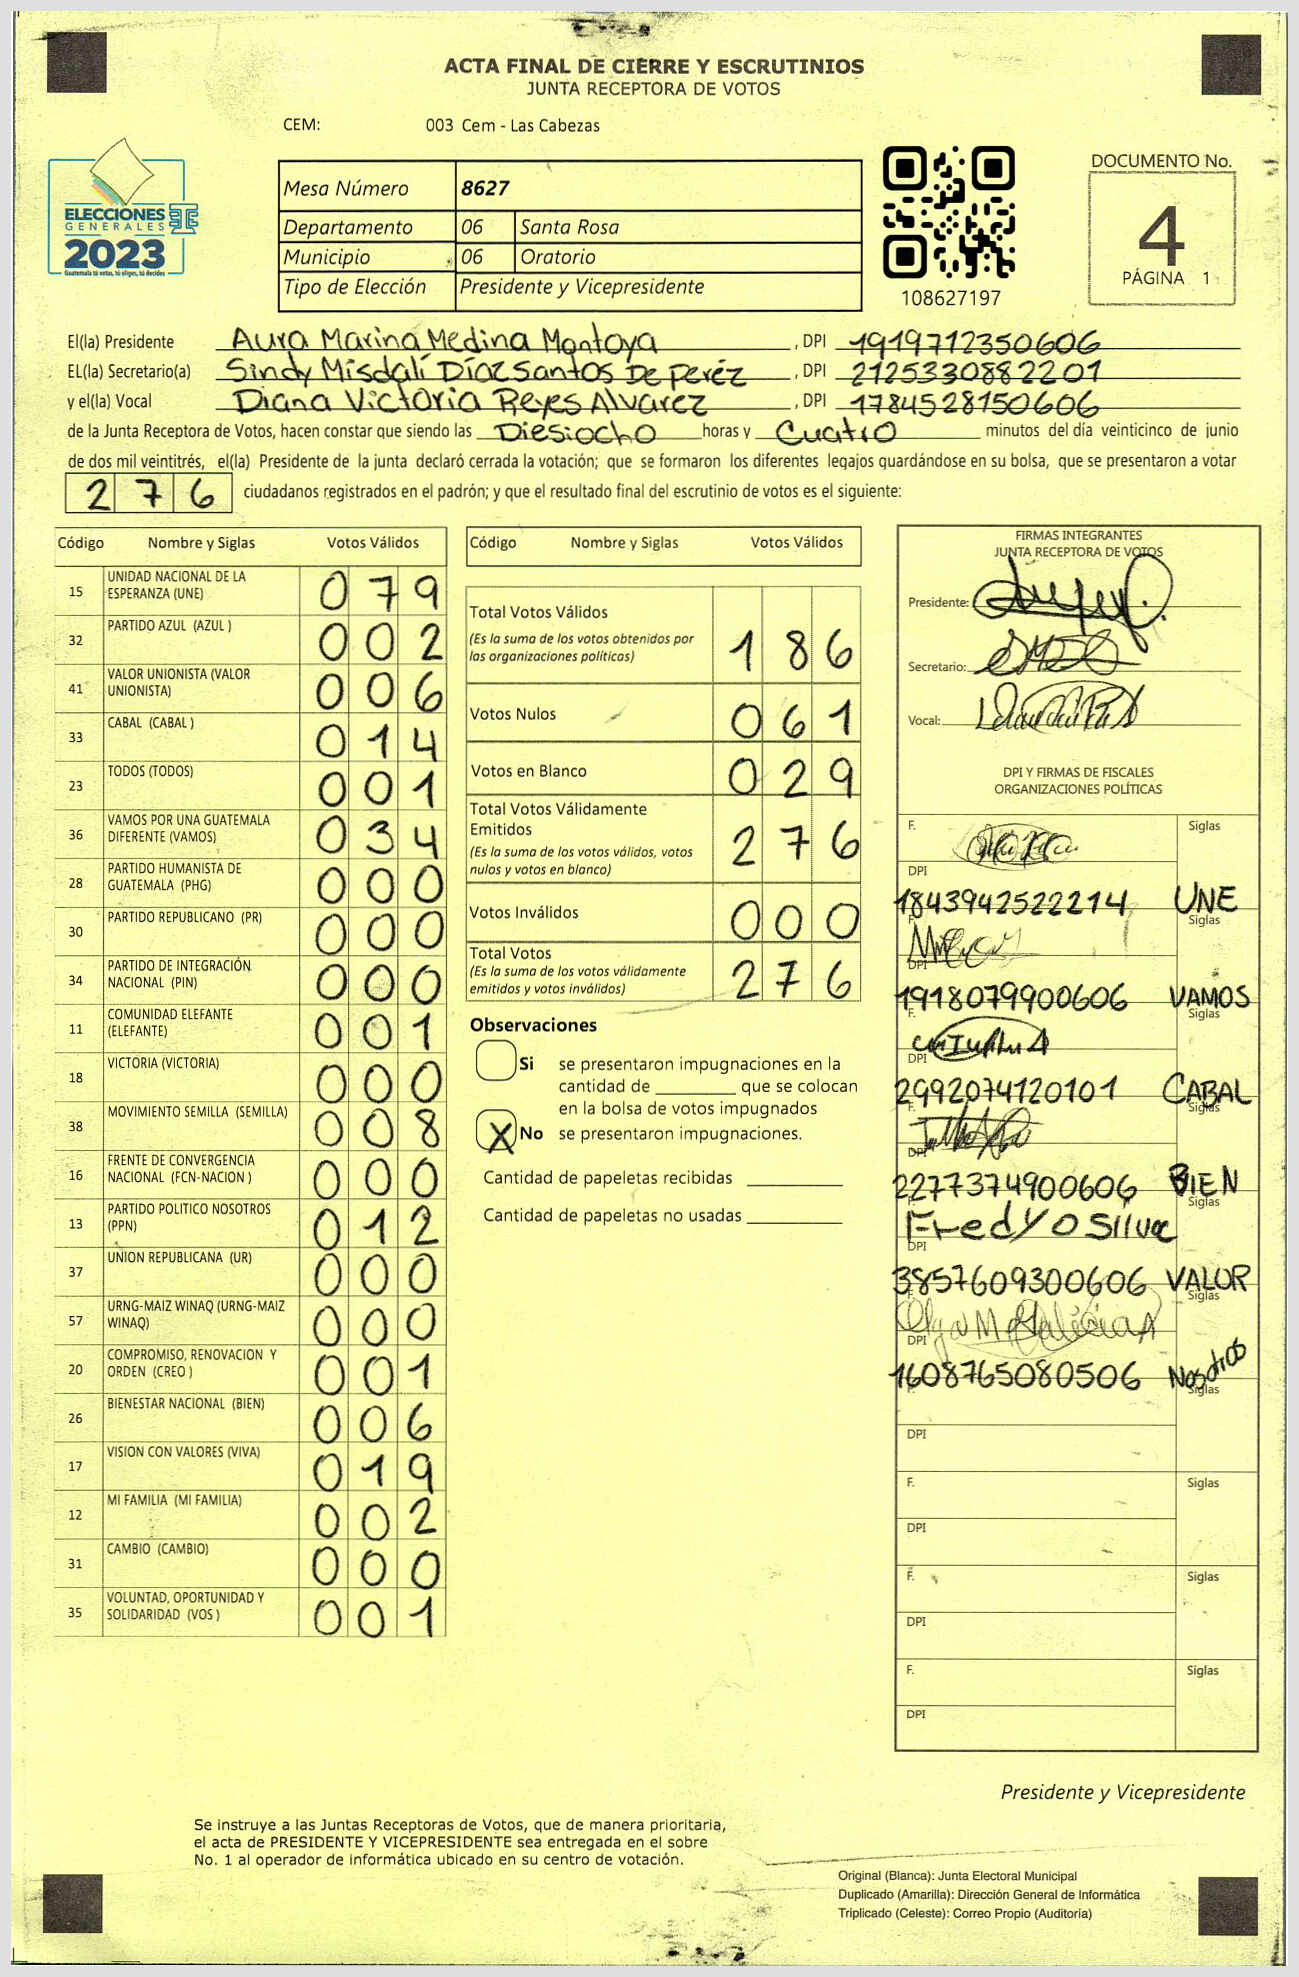 ACTA FINAL DE CIERRE Y ESCRUTINIOS
JUNTA RECEPTORA DE VOTOS
CEM: 003 Cem - Las Cabezas
ELECCIONES
GENERALES
2023
Guatemala tú votas, tú eliges, tú decides
Mesa Número 8627
Departamento 06 Santa Rosa
Municipio 06 Oratorio
Tipo de Elección Presidente y Vicepresidente
108627197
DOCUMENTO No.
4
PÁGINA 1
El(la) Presidente Aura Marina Medina Montoya , DPI 1919712350606
EL(la) Secretario(a) Sindy Misdalí Díaz Santos De Peréz , DPI 2125330882201
y el(la) Vocal Diana Victoria Reyes Alvarez , DPI 1784528150606
de la Junta Receptora de Votos, hacen constar que siendo las Diesiocho horas y Cuatro minutos del día veinticinco de junio
de dos mil veintitrés, el(la) Presidente de la junta declaró cerrada la votación; que se formaron los diferentes legajos guardándose en su bolsa, que se presentaron a votar
276 ciudadanos registrados en el padrón; y que el resultado final del escrutinio de votos es el siguiente:
Código Nombre y Siglas Votos Válidos
15 UNIDAD NACIONAL DE LA
ESPERANZA (UNE) 079
32 PARTIDO AZUL (AZUL ) 002
41 VALOR UNIONISTA (VALOR
UNIONISTA) 006
33 CABAL (CABAL ) 014
23 TODOS (TODOS) 001
36 VAMOS POR UNA GUATEMALA
DIFERENTE (VAMOS) 034
28 PARTIDO HUMANISTA DE
GUATEMALA (PHG) 000
30 PARTIDO REPUBLICANO (PR) 000
34 PARTIDO DE INTEGRACIÓN
NACIONAL (PIN) 000
11 COMUNIDAD ELEFANTE
(ELEFANTE) 001
18 VICTORIA (VICTORIA) 000
38 MOVIMIENTO SEMILLA (SEMILLA) 008
16 FRENTE DE CONVERGENCIA
NACIONAL (FCN-NACION ) 000
13 PARTIDO POLITICO NOSOTROS
(PPN) 012
37 UNION REPUBLICANA (UR) 000
57 URNG-MAIZ WINAQ (URNG-MAIZ
WINAQ) 000
20 COMPROMISO, RENOVACION Y
ORDEN (CREO ) 001
26 BIENESTAR NACIONAL (BIEN) 006
17 VISION CON VALORES (VIVA) 019
12 MI FAMILIA (MI FAMILIA) 002
31 CAMBIO (CAMBIO) 000
35 VOLUNTAD, OPORTUNIDAD Y
SOLIDARIDAD (VOS ) 001
Código Nombre y Siglas Votos Válidos
Total Votos Válidos 186
(Es la suma de los votos obtenidos por
las organizaciones políticas)
Votos Nulos 061
Votos en Blanco 029
Total Votos Válidamente
Emitidos 276
(Es la suma de los votos válidos, votos
nulos y votos en blanco)
Votos Inválidos 000
Total Votos 276
(Es la suma de los votos válidamente
emitidos y votos inválidos)
Observaciones
Si se presentaron impugnaciones en la
cantidad de ________ que se colocan
en la bolsa de votos impugnados
X No se presentaron impugnaciones.
Cantidad de papeletas recibidas
Cantidad de papeletas no usadas
FIRMAS INTEGRANTES
JUNTA RECEPTORA DE VOTOS
Presidente:
Secretario:
Vocal:
DPI Y FIRMAS DE FISCALES
ORGANIZACIONES POLÍTICAS
F. Siglas
DPI
1843942522214 UNE
F. Siglas
DPI
1918079900606 VAMOS
F. Siglas
DPI
2992074120101 CABAL
F. Siglas
DPI
2277374900606 BIEN
F. Siglas
Fredy O Silva
DPI
3857609300606 VALOR
F. Siglas
DPI
1608765080506 Nosotros
F. Siglas
DPI
F. Siglas
DPI
F. Siglas
DPI
F. Siglas
DPI
Presidente y Vicepresidente
Se instruye a las Juntas Receptoras de Votos, que de manera prioritaria,
el acta de PRESIDENTE Y VICEPRESIDENTE sea entregada en el sobre
No. 1 al operador de informática ubicado en su centro de votación.
Original (Blanca): Junta Electoral Municipal
Duplicado (Amarilla): Dirección General de Informática
Triplicado (Celeste): Correo Propio (Auditoría)